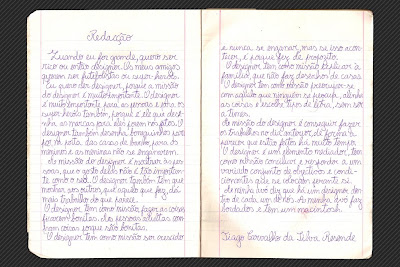 Redacção
Quando eu for grande, quero ser
rico ou então designer. Os meus amigos
querem ser futebolistas ou super heróis.
Eu quero ser designer, porque a missão
do designer é muito importante. O designer
é muito importante para as pessoas e para os
super heróis também, porque é ele que dese-
nha as marcas para eles porem nos fatos. O
designer também desenha bonequinhos para
pôr na porta das casas de banho, para os
meninos e as meninas não se enganarem.
A missão do designer é mostrar às pes-
soas, que o gosto delas não é tão importan-
te como o seu. O designer também tem que
mostrar aos outros, que aquilo que faz, dá
mais trabalho do que parece.
O designer tem como missão fazer as coisas
ficarem bonitas. As pessoas adultas com-
pram coisas porque são bonitas.
O designer tem como missão ser divertido
e nunca se enganar, mas se isso acon-
tecer, é porque fez de propósito.
O designer tem como missão explicar à
família, que não faz desenhos de casas.
O designer tem como missão preocupar-se
com aquilo que ninguém se preocupa, alinhar
as coisas e escolher tipos de letra, sem ser
a times.
A missão do designer é conseguir fazer
os trabalhos no dia anterior, de forma a
parecer que estão feitos há muito tempo.
O designer é um elemento mediador, tem
como missão conciliar e responder a um
variado conjunto de objectivos e condi-
cionantes que se colocam perante si.
A minha avó diz que há um designer den-
tro de cada um de nós. A minha avó faz
bordados e tem um macintosh.
Tiago Carvalho da Silva Resende